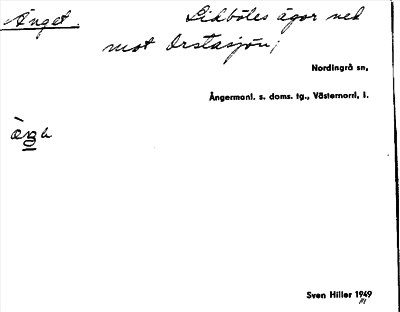 Änget. Lidböles ägor ned
mot Orstasjön;
Nordingrå sn,
Ångermanl. s. doms. tg., Västernorrl. l.
Sven Hiller 1949